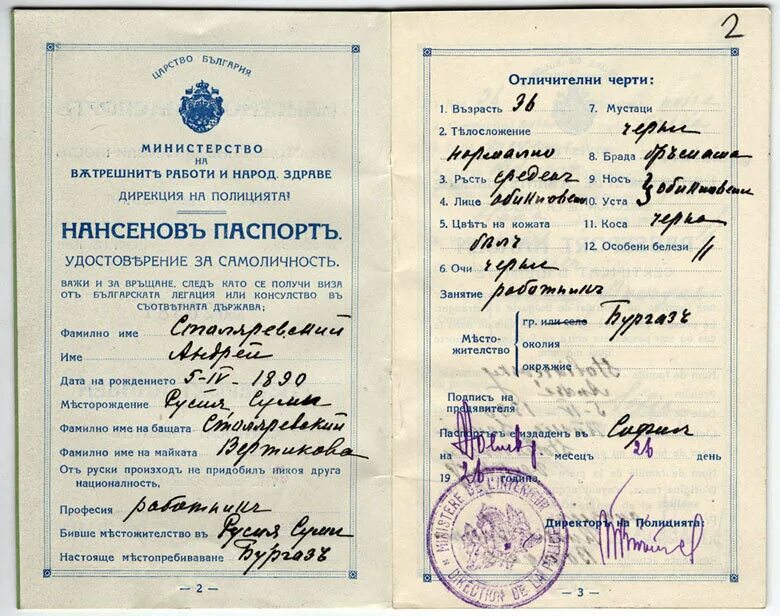 ЦАРСТВО БЪЛГАРИЯ
МИНИСТЕРСТВО
НА
ВѪТРЕШНИТѢ РАБОТИ И НАРОД. ЗДРАВЕ
ДИРЕКЦИЯ НА ПОЛИЦИЯТА!
НАНСЕНОВЪ ПАСПОРТЪ.
УДОСТОВѢРЕНИЕ ЗА САМОЛИЧНОСТЬ.
ВАЖИ И ЗА ВРЪЩАНЕ, СЛЕДЪ КАТО СЕ ПОЛУЧИ ВИЗА
ОТЪ БЪЛГАРСКАТА ЛЕГАЦИЯ ИЛИ КОНСУЛСТВО ВЪ
СЪОТВѢТНАТА ДЪРЖАВА;
Фамилно име Сталяревский
Име Андрей
Дата на рождението 5-IV-1890
Мѣсторождение Русия Суми
Фамилно име на бащата Сталяревский
Фамилно име на майката Вертикова
От руски произход не придобил никоя друга
националность,
Професия работникъ
Бивше мѣстожителство въ Русия Суми
Настояще мѣстопребиваване Бургазъ
— 2 —
2
Отличителни черти:
1. Възрасть 36
2. Тѣлосложение
нормално
3. Ръсть среденъ
4. Лице обикновено
5. Цвѣтъ на кожата
бѣлъ
6. Очи черни
7. Мустаци
черни
8. Брада бръсната
9. Носъ
10. Уста } обикновени
11. Коса черна
12. Особени белези //
Занятие работникъ
Мѣсто-
жителство
гр. или село Бургазъ
околия
окрѫжие
Подпись на
предявителя
Паспортътъ е издаденъ въ София
на месецъ 26 день
1926 година.
Директоръ на Полицията:
MINISTERE DE L'INTERIEUR
DIRECTION DE LA POLICE
— 3 —